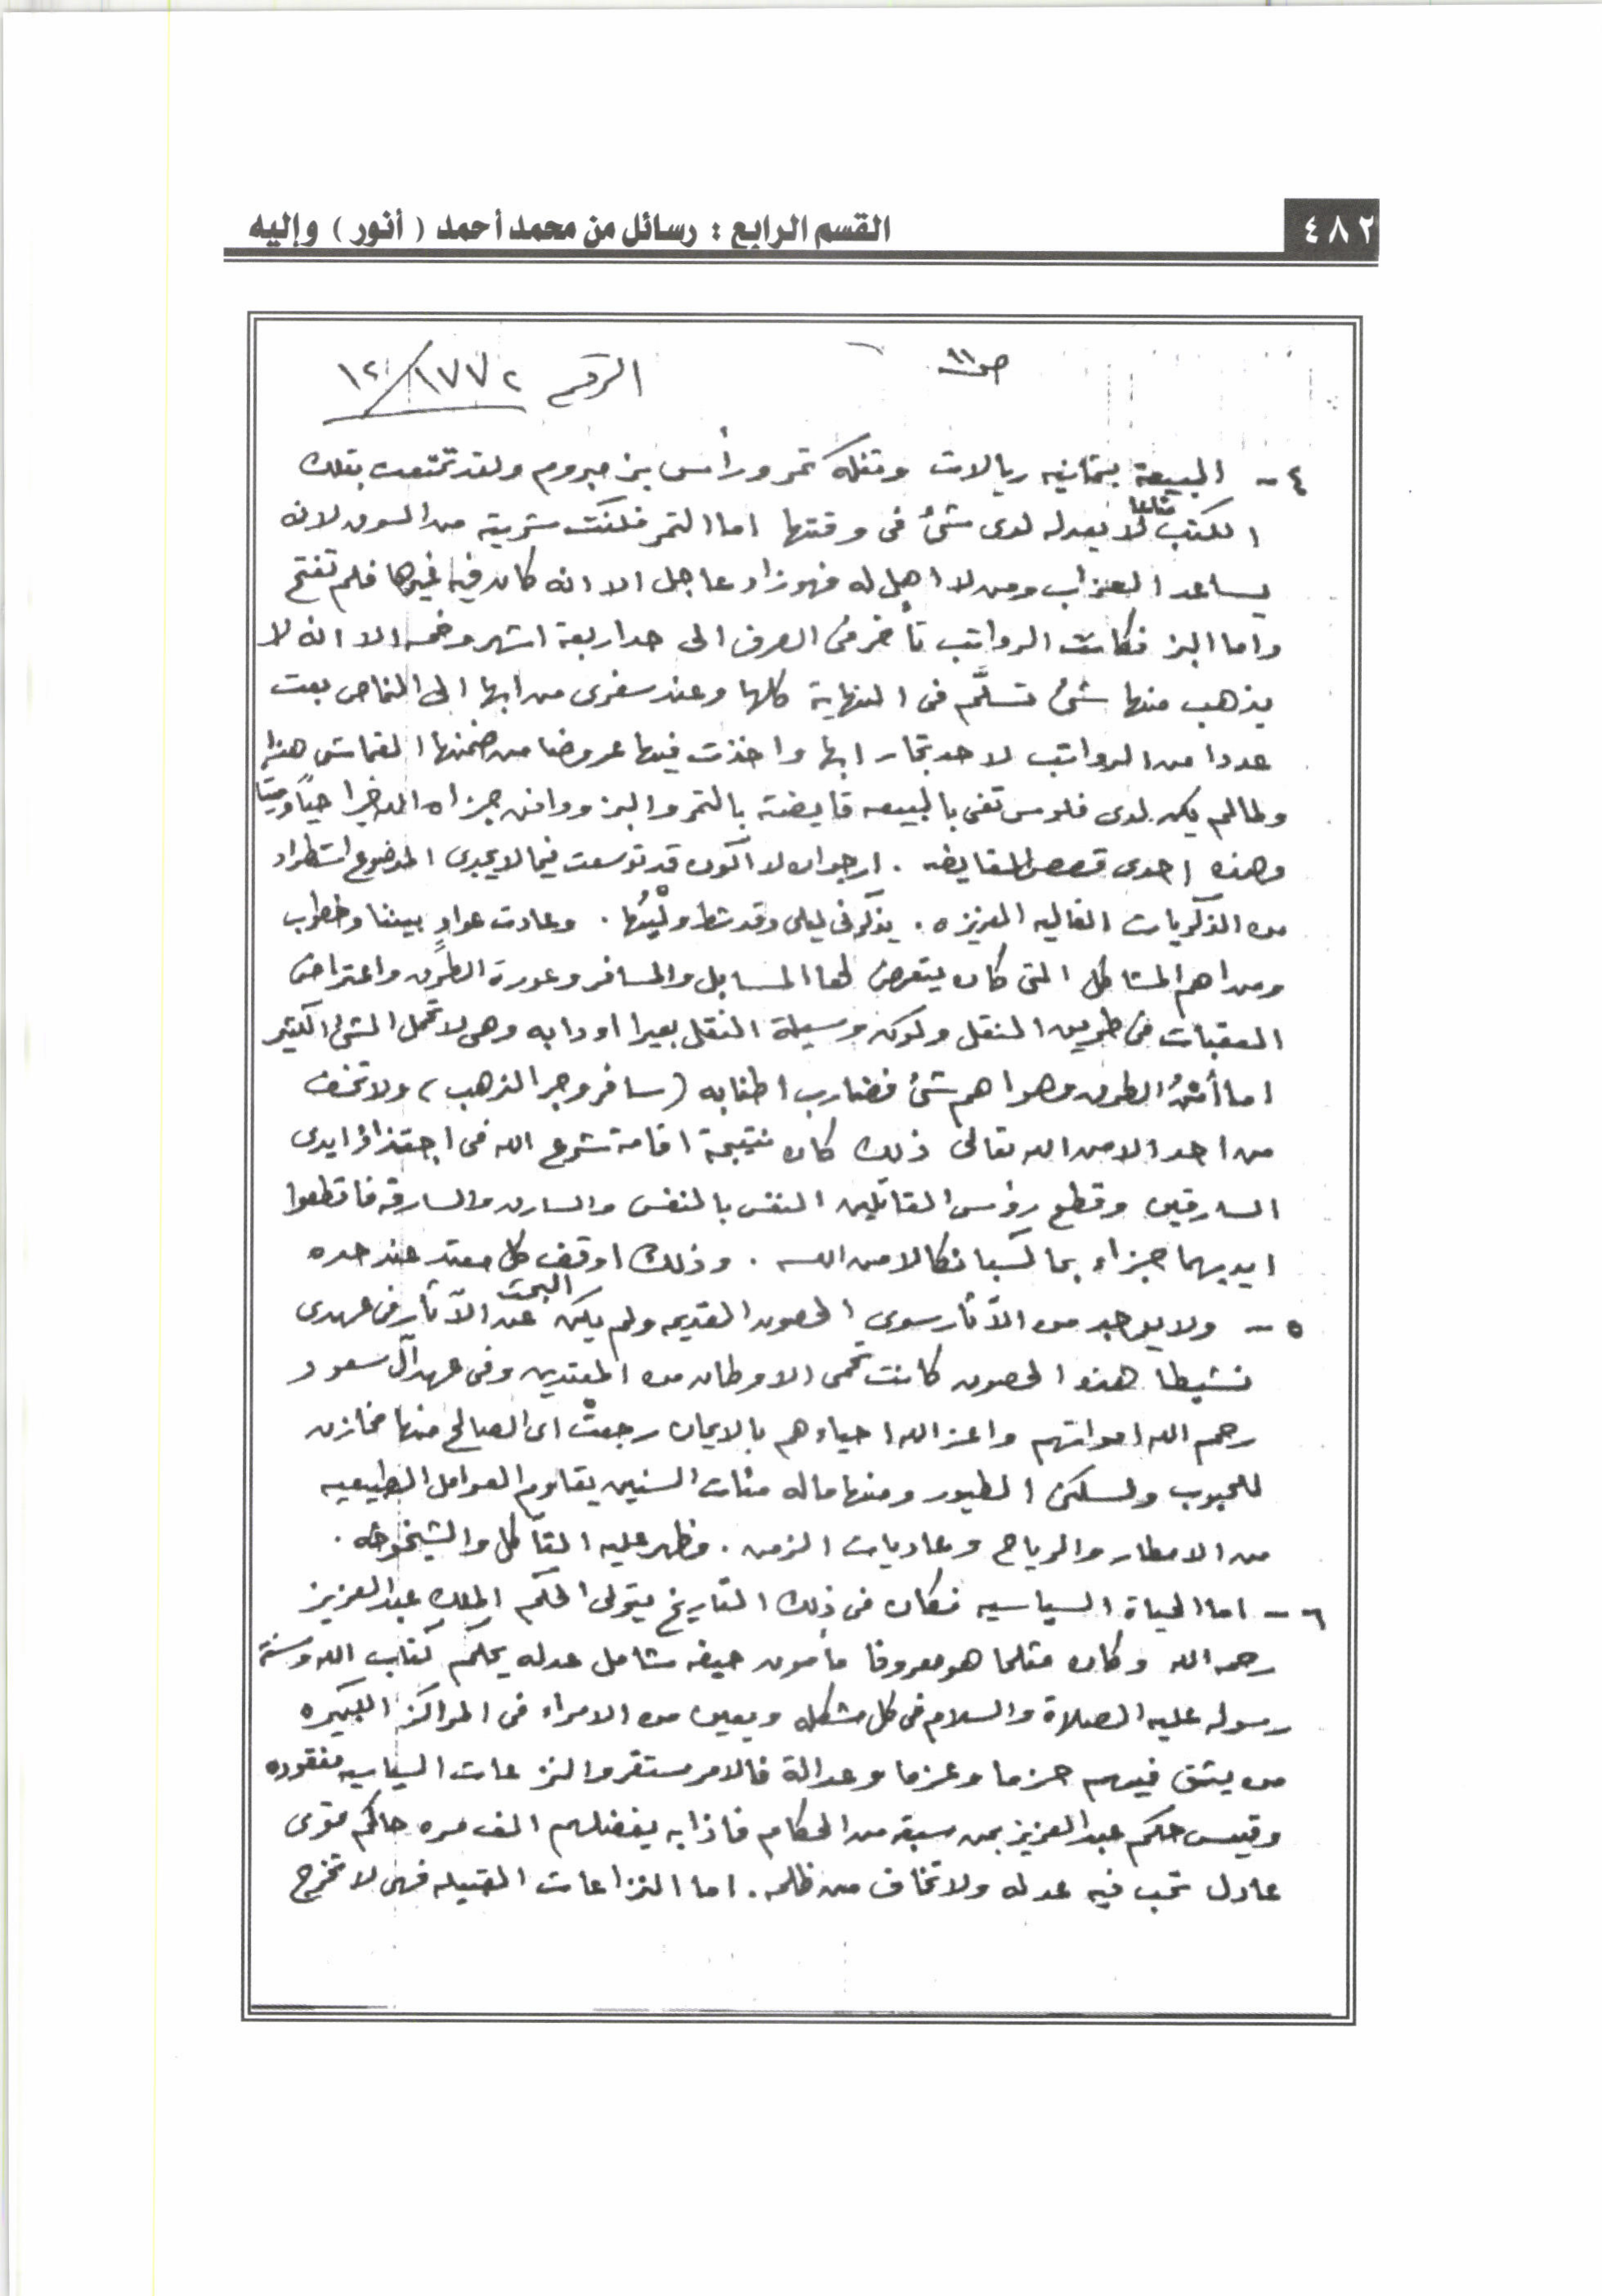 ٤٨٢
القسم الرابع : رسائل من محمد أحمد ( أنور ) وإليه
ص ١١
الرقم ١٧٧٢/١٢
٤ - البيعة بثمانيه ريالات وتنكه تمر ورأس بز مبروم ولقد تمتعت بتلك
الكتب متاعا لا يعدله لدى شئ فى وقتها اما التمر فلكنت شريته من السوق لانه
يساعد العزاب ومن لا اهل له فهو زاد عاجل الا انه كان فيه غيرها فلم تفتح
واما البز فكانت الرواتب تأخر فى الصرف الى حد اربعة اشهر وخمسه الا انه لا
يذهب منها شئ تسلَّم فى النهاية كلها وعند سفرى من ابها الى النماص بعت
عددا من الرواتب لاحد تجار ابها واخذت فيها عروضا من ضمنها القماش هذا
ولما لم يكن لدى فلوس تفى بالبيعه قايضته بالتمر والبز ووافق جزاه الله خيرا حياً وميتا
وهذه احدى قصص المقايضه . ارجو ان لا اكون قد توسعت فيما لا يجدى الموضوع استطراد
من الذكريات الغاليه العزيزه . يذكرنى ليلى وقد شط وليُها . وعادت عوادٍ بيننا وخطوب
ومن اهم المشاكل التى كان يتعرض لها السابل والمسافر وعورة الطرق واعتراض
العقبات فى طريق النقل وكون وسيلة النقل بعيرا او دابه وهى لا تحمل الشئ الكثير
اما أمنُ الطرق وهو اهم شئ فضارب اطنابه ( سافر وجر الذهب ) ولا تخف
من احد الا من الله تعالى ذلك كان نتيجة اقامة شرع الله فى اجتذاذ ايدى
السارقين وقطع رؤس القاتلين النفس بالنفس والسارق والسارقه فاقطعوا
ايديهما جزاء بما كسبا نكالا من الله . وذلك اوقف كل معتد عند حده
٥ - ولا يوجد من الآثار سوى الحصون القديمه ولم يكن البحث عن الآثار فى عهدى
نشيطا هذه الحصون كانت تحمى الاوطان من المعتدين وفى عهد آل سعود
رحم الله امواتهم واعز الله احياءهم بالايمان رجعتْ اى الصالح منها مخازن
للحبوب ولسكن الطيور ومنها ماله مئات السنين يقاوم العوامل الطبيعيه
من الامطار والرياح وعاديات الزمن . وظهر عليه التآكل والشيخوخه .
٦ - اما الحياة السياسيه فكان فى ذلك التاريخ يتولى الحكم الملك عبدالعزيز
رحمه الله وكان مثلما هو معروفا مأمون حيفه شامل عدله يحكم كتاب الله وسنة
رسوله عليه الصلاة والسلام فى كل مشكله ويعين من الامراء فى المراكز الكبيره
من يثق فيهم حزما وعزما وعدالة فالامر مستقر والنزعات السياسيه مفقوده
وقيس حكم عبدالعزيز بمن سبقه من الحكام فاذا به يفضلهم الف مره حاكم قوى
عادل تحب فيه عدله ولا تخاف من ظلمه . اما النزاعات القبيله فهى لا تخرج